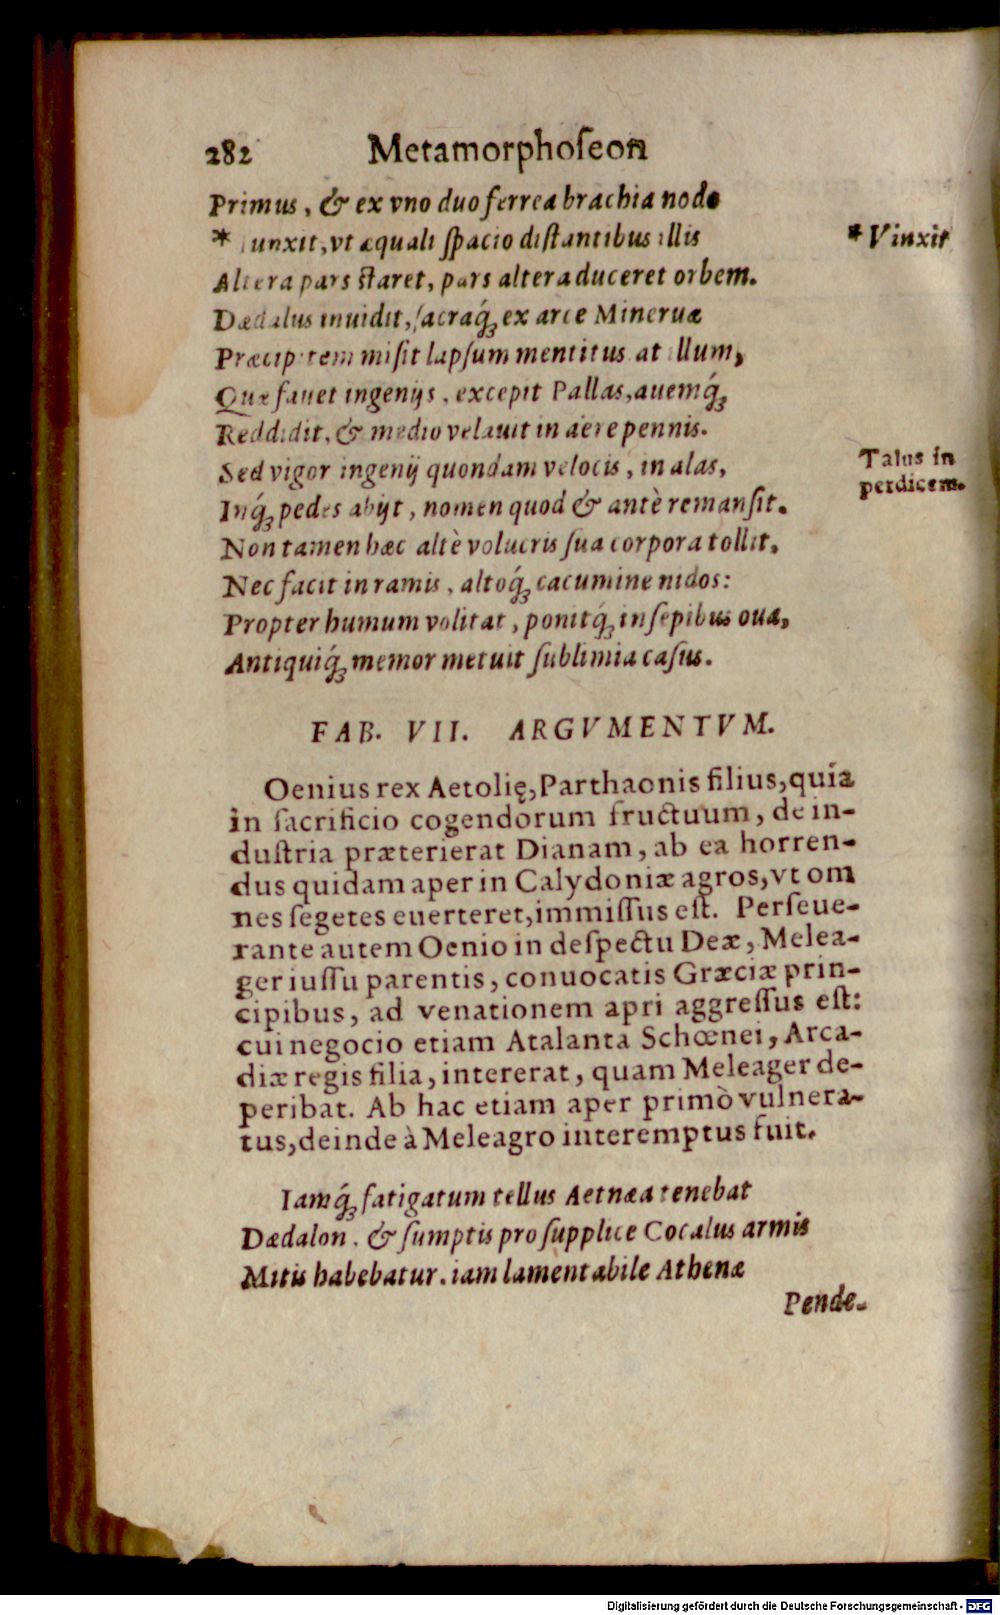 282 Metamorphoſeon
Primus, & ex vno duo ferrea brachia nodo
* Iunxit, vt æquali ſpacio diſtantibus illis
* Vinxit
Altera pars ſtaret, pars altera duceret orbem.
Dædalus inuidit, ſacraq́ꝫ ex arce Mineruæ
Præcipitem miſit lapſum mentitus. at illum,
Quæ fauet ingenijs, excepit Pallas, auemq́ꝫ
Reddidit, & medio velauit in aëre pennis.
Sed vigor ingenij quondam velocis, in alas,
Talus in
perdicem.
Inq́ꝫ pedes abijt, nomen quod & antè remanſit.
Non tamen hæc altè volucris ſua corpora tollit,
Nec facit in ramis, altoq́ꝫ cacumine nidos:
Propter humum volitat, ponitq́ꝫ in ſepibus oua,
Antiquiq́ꝫ memor metuit ſublimia caſus.
FAB. VII. ARGVMENTVM.
Oenius rex Aetolię, Parthaonis filius, quia
in ſacrificio cogendorum fructuum, de in-
duſtria præterierat Dianam, ab ea horren-
dus quidam aper in Calydoniæ agros, vt om
nes ſegetes euerteret, immiſſus eſt. Perſeue-
rante autem Oenio in deſpectu Deæ, Melea-
ger iuſſu parentis, conuocatis Græciæ prin-
cipibus, ad venationem apri aggreſſus eſt:
cui negocio etiam Atalanta Schœnei, Arca-
diæ regis filia, intererat, quam Meleager de-
peribat. Ab hac etiam aper primò vulnera-
tus, deinde à Meleagro interemptus fuit.
Iamq́ꝫ fatigatum tellus Aetnæa tenebat
Dædalon, & ſumptis pro ſupplice Cocalus armis
Mitis habebatur. iam lamentabile Athenæ
Pende-
Digitalisierung gefördert durch die Deutsche Forschungsgemeinschaft - DFG